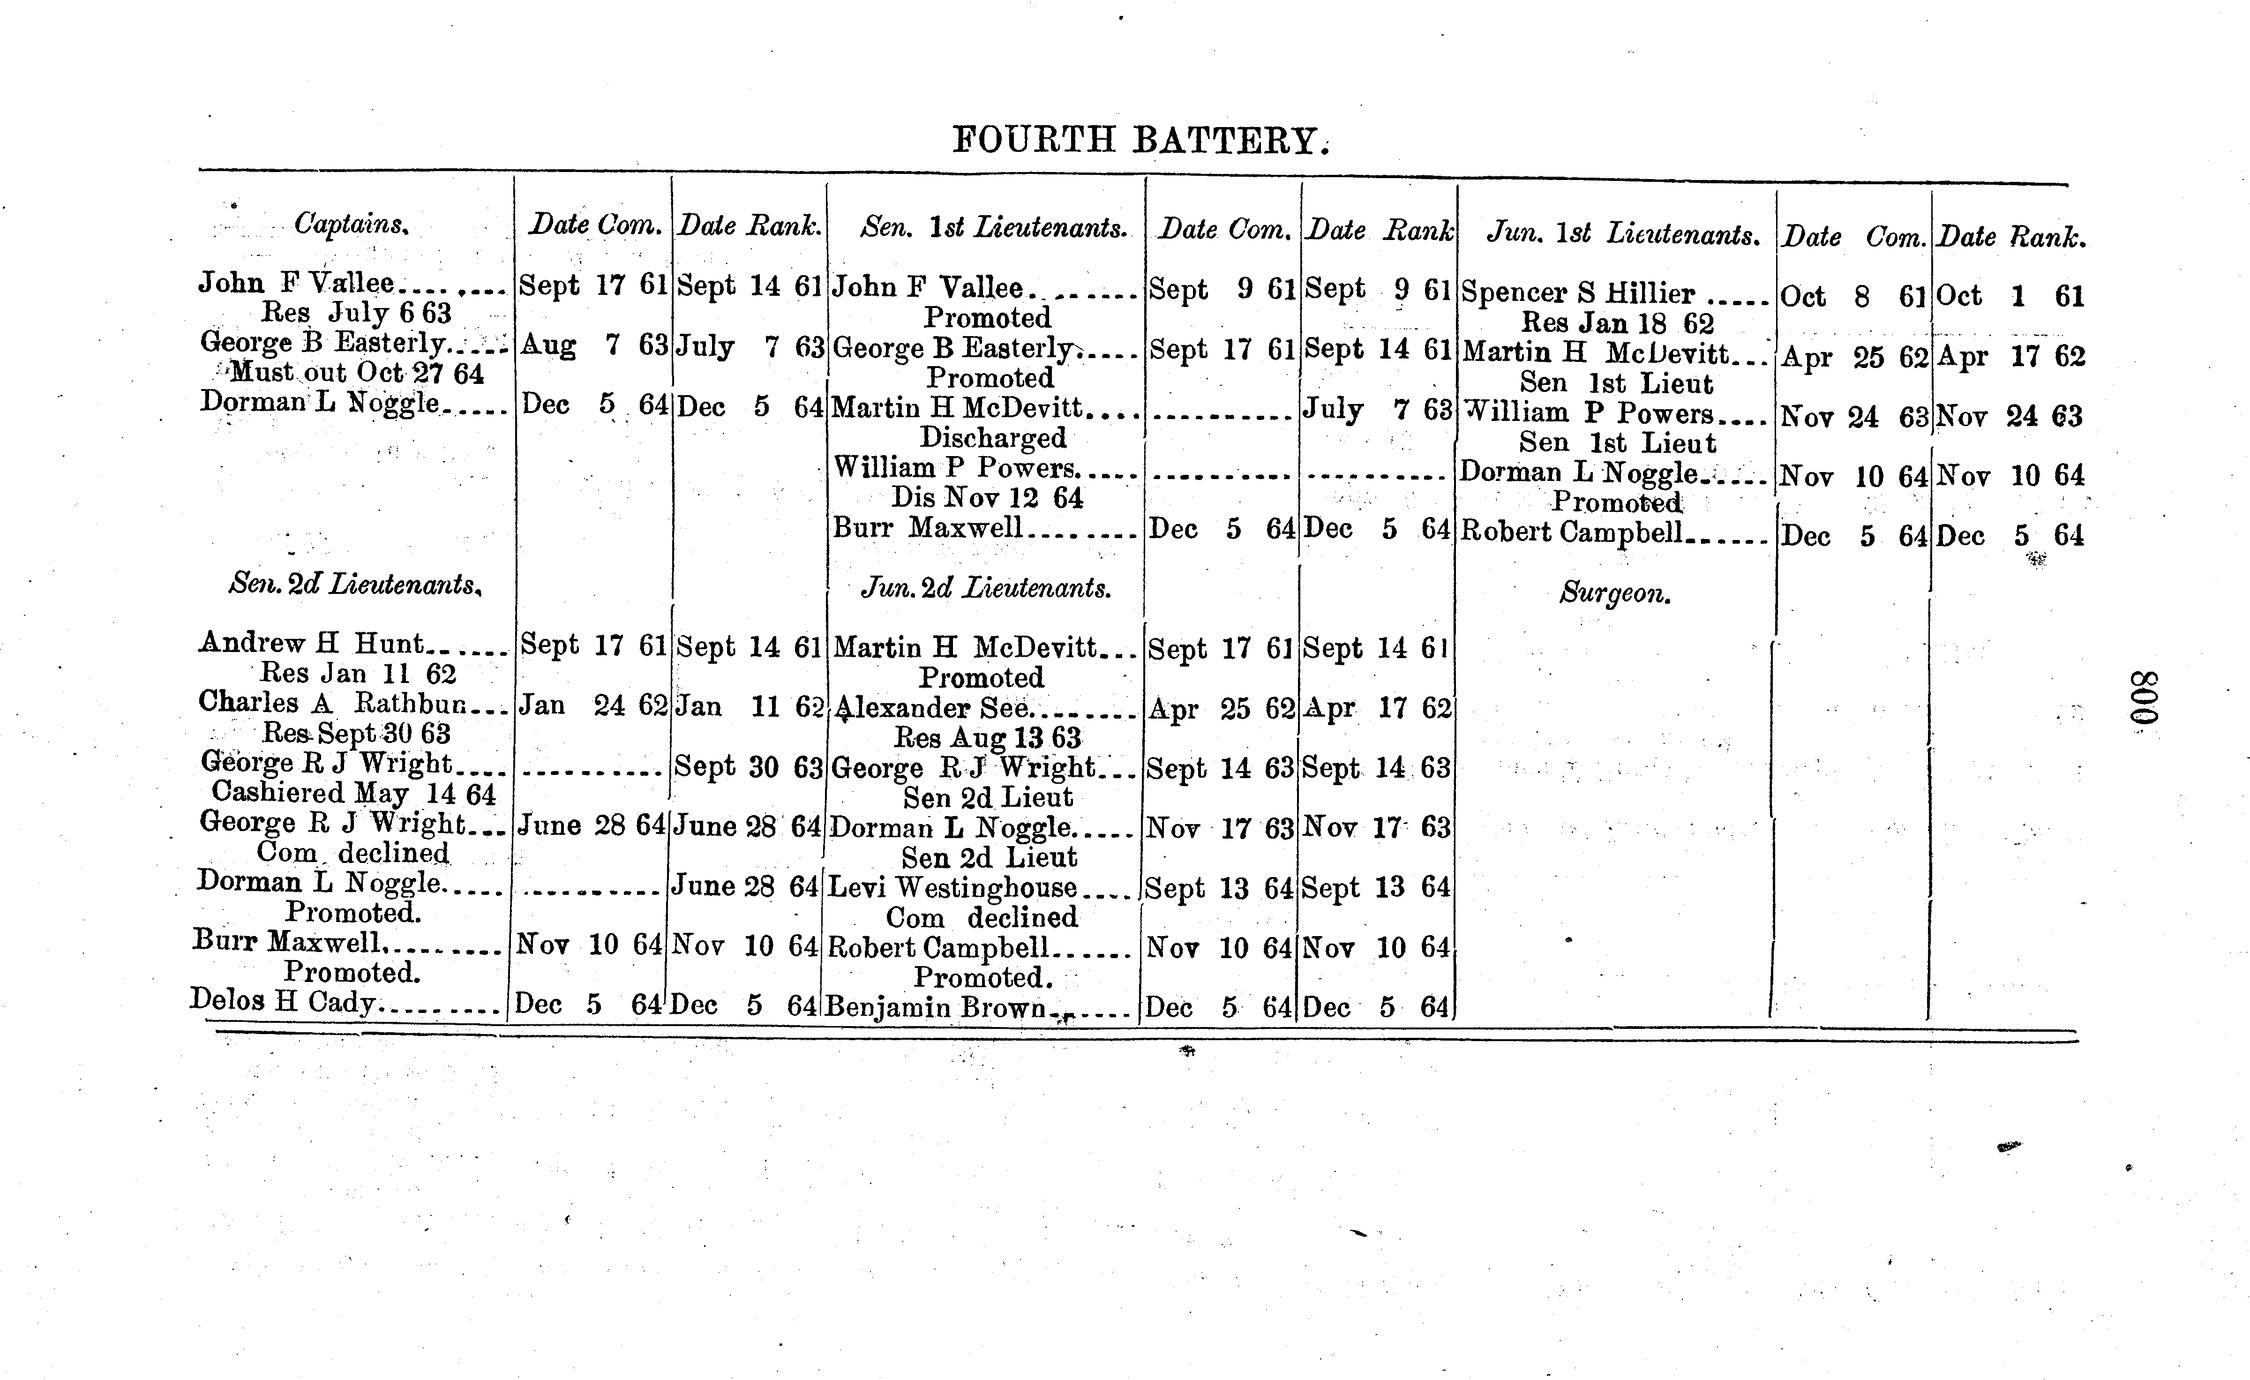 FOURTH BATTERY.
Captains. Date Com. Date Rank. Sen. 1st Lieutenants. Date Com. Date Rank Jun. 1st Lieutenants. Date Com. Date Rank.
John F Vallee........ Sept 17 61 Sept 14 61 John F Vallee........ Sept 9 61 Sept 9 61 Spencer S Hillier ..... Oct 8 61 Oct 1 61
Res July 6 63 Promoted Res Jan 18 62
George B Easterly...... Aug 7 63 July 7 63 George B Easterly..... Sept 17 61 Sept 14 61 Martin H McDevitt... Apr 25 62 Apr 17 62
Must out Oct 27 64 Promoted Sen 1st Lieut
Dorman L Noggle...... Dec 5 64 Dec 5 64 Martin H McDevitt.... .......... July 7 63 William P Powers.... Nov 24 63 Nov 24 63
Discharged Sen 1st Lieut
William P Powers..... .......... .......... Dorman L Noggle...... Nov 10 64 Nov 10 64
Dis Nov 12 64 Promoted
Burr Maxwell........ Dec 5 64 Dec 5 64 Robert Campbell...... Dec 5 64 Dec 5 64
Sen. 2d Lieutenants. Jun. 2d Lieutenants. Surgeon.
Andrew H Hunt...... Sept 17 61 Sept 14 61 Martin H McDevitt... Sept 17 61 Sept 14 61
Res Jan 11 62 Promoted
Charles A Rathbun... Jan 24 62 Jan 11 62 Alexander See........ Apr 25 62 Apr 17 62
Res Sept 30 63 Res Aug 13 63
George R J Wright.... .......... Sept 30 63 George R J Wright... Sept 14 63 Sept 14 63
Cashiered May 14 64 Sen 2d Lieut
George R J Wright... June 28 64 June 28 64 Dorman L Noggle..... Nov 17 63 Nov 17 63
Com. declined Sen 2d Lieut
Dorman L Noggle..... .......... June 28 64 Levi Westinghouse.... Sept 13 64 Sept 13 64
Promoted. Com declined
Burr Maxwell.......... Nov 10 64 Nov 10 64 Robert Campbell...... Nov 10 64 Nov 10 64
Promoted. Promoted.
Delos H Cady.......... Dec 5 64 Dec 5 64 Benjamin Brown...... Dec 5 64 Dec 5 64
800